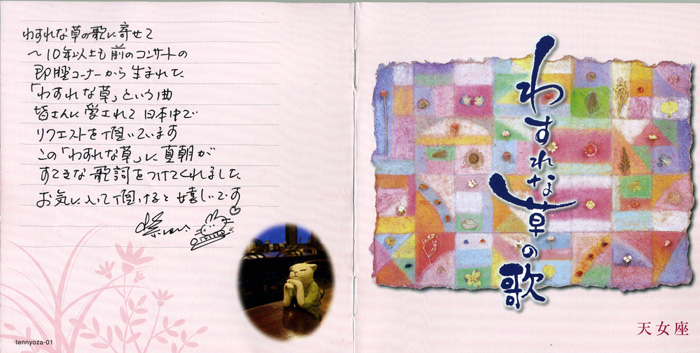 わすれな草の歌に寄せて
〜10年以上も前のコンサートの
即興コーナーから生まれた
「わすれな草」という曲
皆さんに愛されて日本中で
リクエストを頂いています
この「わすれな草」に真朝が
すてきな歌詞をつけてくれました
お気に入って頂けると嬉しいです
tennyoza-01
わすれな草の歌
天女座